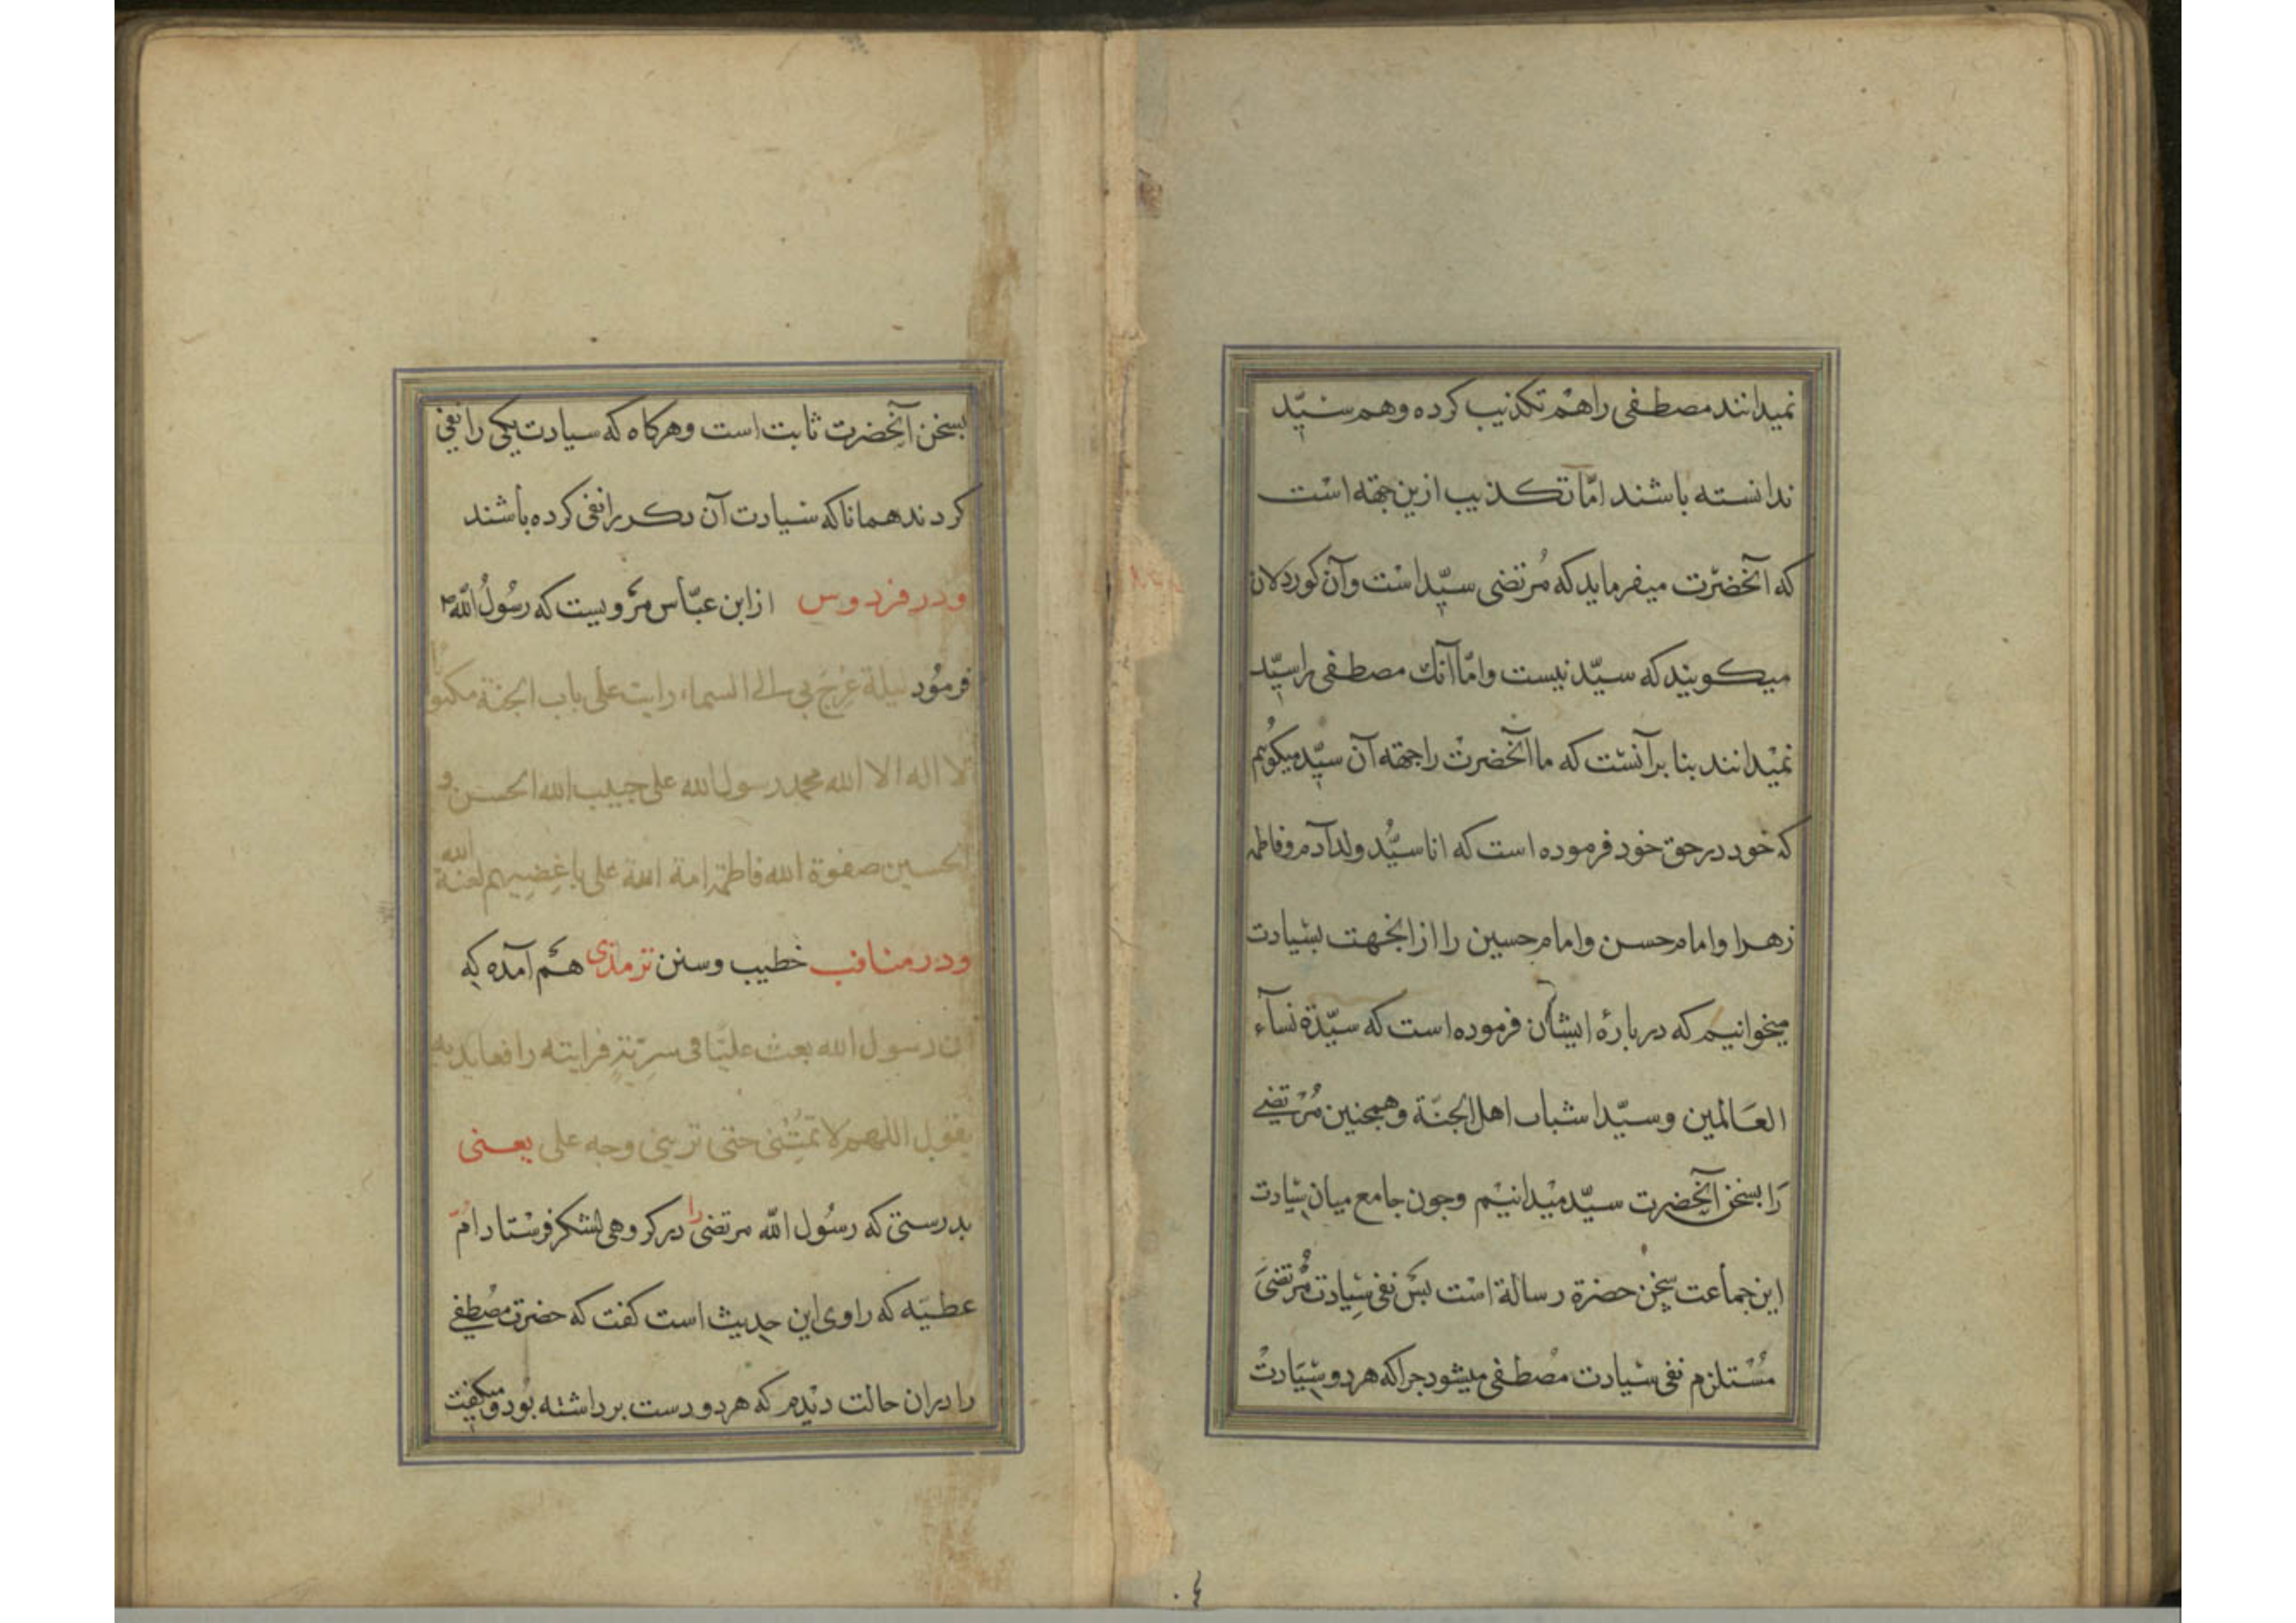 نمیدانند مصطفی را هم تکذیب کرده و هم سیّد
ندانسته باشند امّا تکذیب ازین جهة است
که آنحضرت میفرماید که مُرتضی سیّد است و آن کوردلان
میکویند که سیّد نیست و امّا آنك مصطفی را سیّد
نمیدانند بنا بر آنست که ما آنحضرت را جهة آن سیّد میکوئیم
که خود در حق خود فرموده است که انا سیّد ولد آدم و فاطمه
زهرا و امام حسن و امام حسین را از انجهت بسیادت
میخوانیم که در بارهٔ ایشان فرموده است که سیّدة نسآء
العَالمین و سیّدا شباب اهل الجنّة و همجنین مُرْتضی
رَا بسخن آنحضرت سیّد میْدانیْم وجون جامع میان سیادت
این جماعت سخن حضرة رسالة است بَس نفی سِیادت مُرْتضیَ
مُسْتلزم نفی سیادت مصُطفی میشود جرا که هر دو سیَادتْ
بسخن آنحضرت ثابت است و هرکاه که سیادت یکی را نفی
کردند همانا که سیادت آن دکر را نفی کرده باشند
و در فردوس از ابن عبّاس مرویست که رسُولُ اللّه ص
فرمُود لیلة عُرِجَ بی الی السماء رایت علی باب الجنة مکتوبا
لا اله الا الله محمد رسول الله علی حبیب الله الحسن و
الحسین صفوة الله فاطمة امة الله علی باغِضِیهم لعنة الله
و در مناقب خطیب و سنن ترمذی هم آمده که
ان رسول الله بعث علیّا فی سرِیّةٍ فرایته رافعا یدیه
یقول اللهم لا تُمِتْنی حتی ترینی وجه علی یعنی
بدرستی که رسُول اللّه مرتضی را در کروهی لشکر فرسْتاد امّ
عطیَه که راوی این حدیث است کفت که حضرت مصُطفی
را دران حالت دیْدم که هر دو دست بر داشته بُود و میکفت